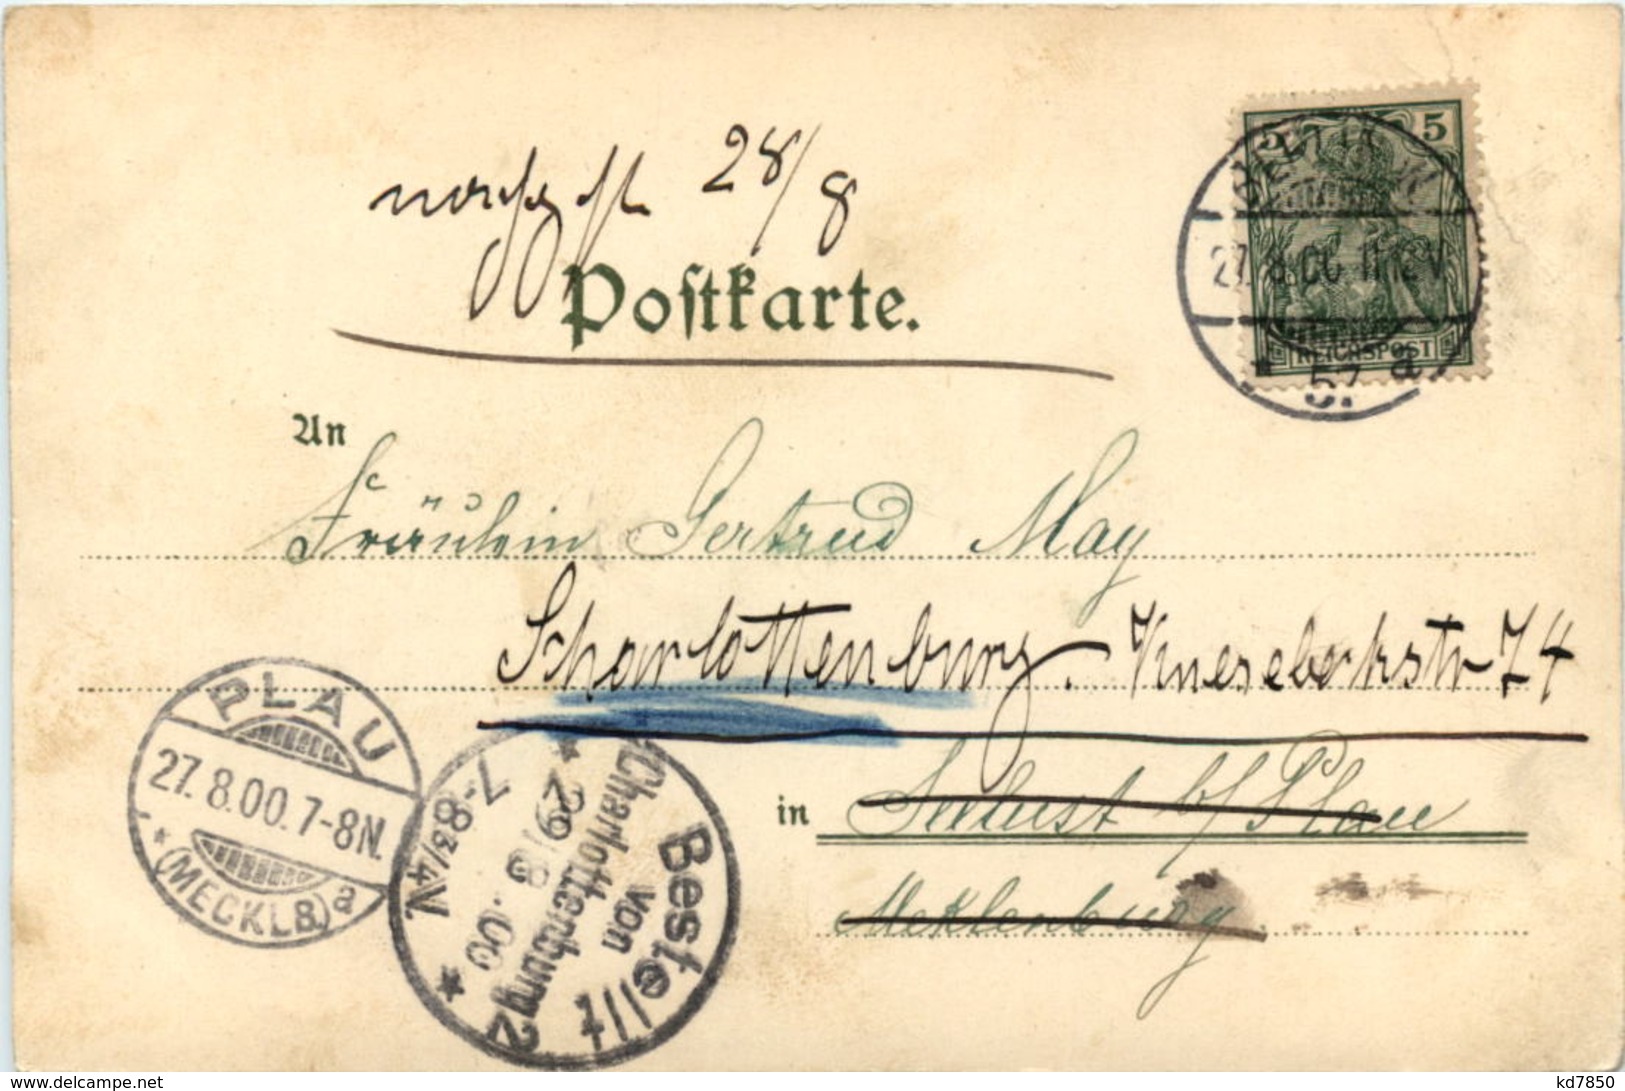 28/8
Postkarte.
5 5
BERLIN W
27.8.00 11-12V
REICHSPOST
* 57 a
An
Fräulein Gertrud May
Scharlottenburg. Knesebekstr 74
PLAU
27.8.00.7-8N.
* (MECKLB.) a
Bestellt
von
Charlottenburg 2
29/8.00
7-8 3/4 N
in b/ Plau
Meklenburg
www.delcampe.net
kd7850